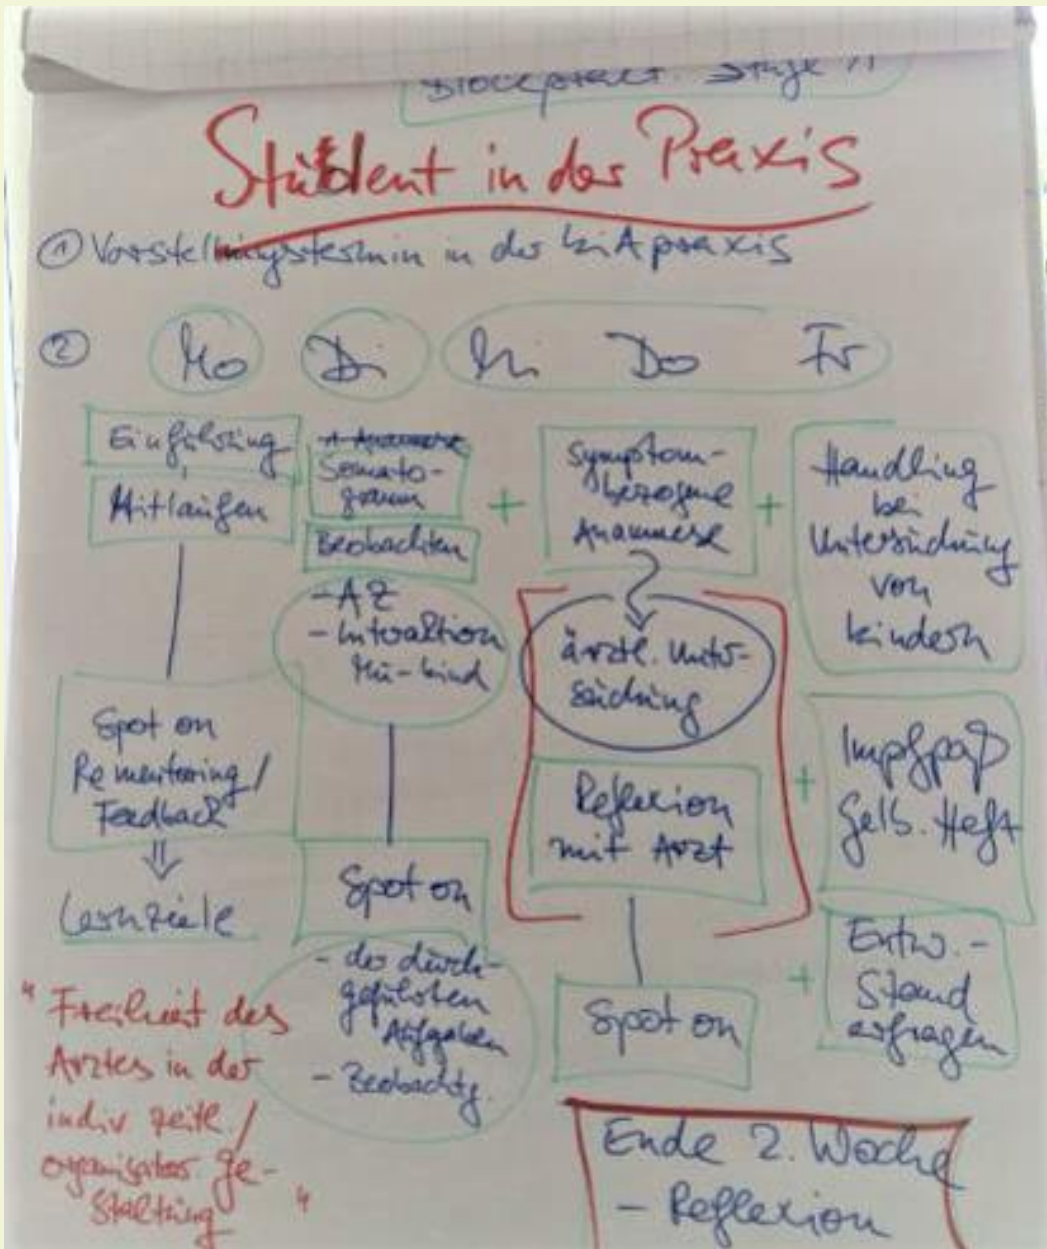 Blockprakt. Stufe 1
Student in der Praxis
① Vorstellungstermin in der KiApraxis
② Mo Di Mi Do Fr
Einführung
Mitlaufen
Spot on
Re mentoring /
Feedback
⇓
Lernziele
" Freiheit des
Arztes in der
indiv zeitl. /
organisator Ge-
staltung "
Anamnese
Somato-
gramm
Beobachten
- AZ
- Interaktion
Mu-Kind
Spot on
- der durch-
geführten
Aufgaben
- Beobachtg.
+
Symptom-
bezogene
Anamnese
ärztl. Unter-
suchung
Reflexion
mit Arzt
Spot on
+ Handling
bei
Untersuchung
von
Kindern
+ Impfpaß
Gelb. Heft
+ Entw.-
Stand
erfragen
Ende 2. Woche
- Reflexion